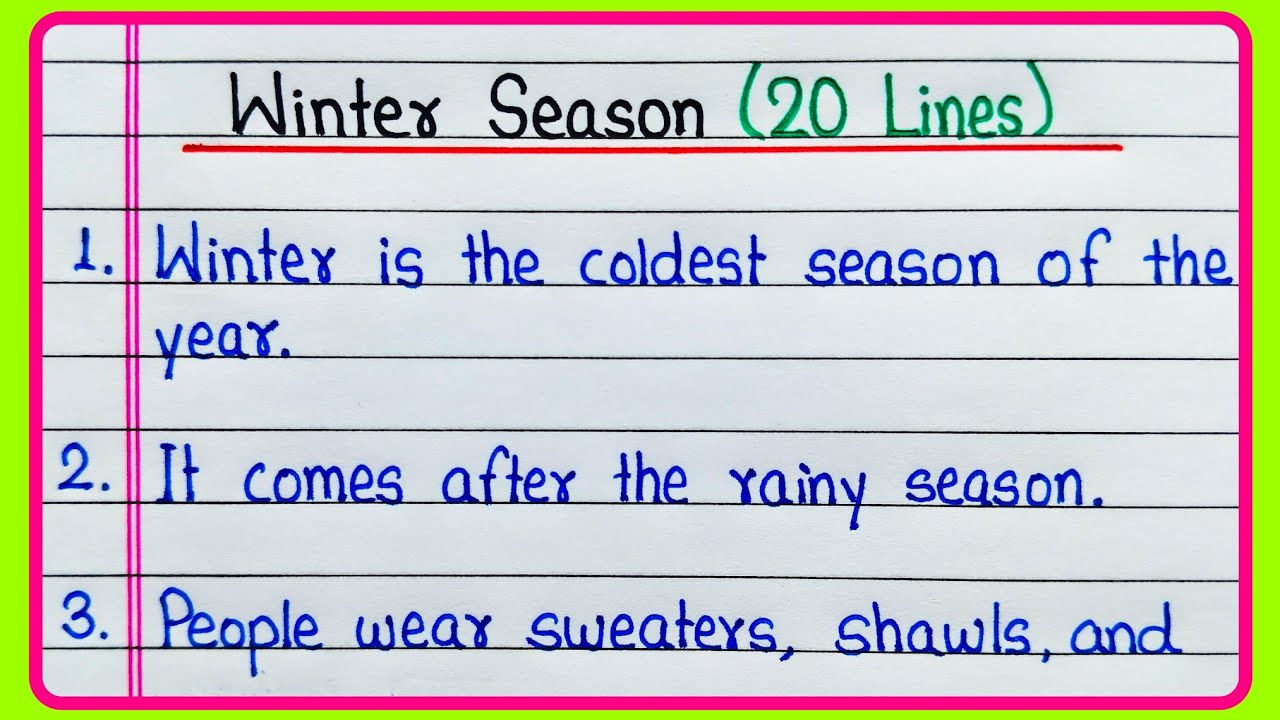 Winter Season (20 Lines)
1. Winter is the coldest season of the
year.
2. It comes after the rainy season.
3. People wear sweaters, shawls, and